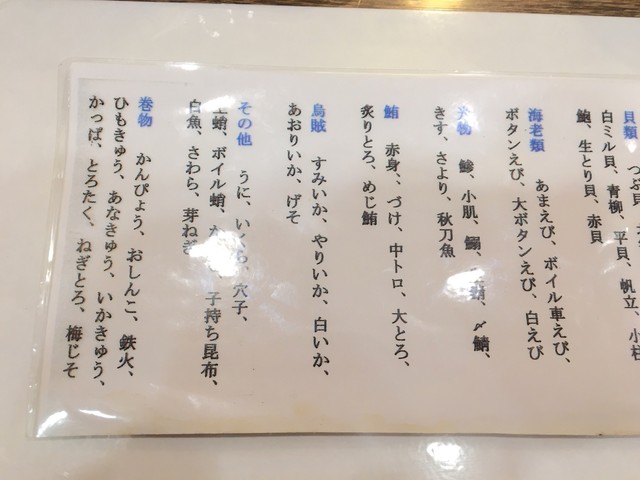 貝類　つぶ貝、
白ミル貝、青柳、平貝、帆立、小柱
鮑、生とり貝、赤貝
海老類　あまえび、ボイル車えび、
ボタンえび、大ボタンえび、白えび
物　鯵、小肌、鰯、〆鯖、
きす、さより、秋刀魚
鮪　赤身、、づけ、中トロ、大とろ、
炙りとろ、めじ鮪
烏賊　すみいか、やりいか、白いか、
あおりいか、げそ
その他　うに、いくら、穴子、
蛸、ボイル蛸、子持ち昆布、
白魚、さわら、芽ねぎ
巻物　かんぴょう、おしんこ、鉄火、
ひもきゅう、あなきゅう、いかきゅう、
かっぱ、とろたく、ねぎとろ、梅じそ